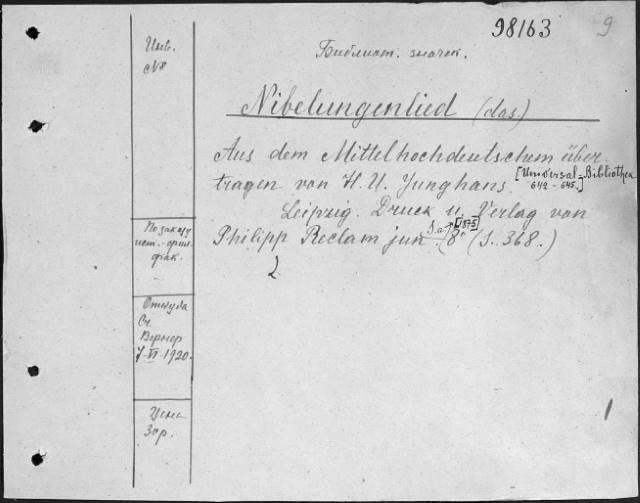 98163
9
Библиот. значек.
Инв.
№
Nibelungenlied (das)
Aus dem Mittelhochdeutschem über-
tragen von H. U. Junghans. [Universal-Bibliothek
642-645.]
Leipzig. Druck u. Verlag von
Philipp Reclam jun. S.a. [1875] 8° (S. 368.)
2
По заказу
ист.-
фак.
Откуда
Ст.
Вернер
7-VI-1920.
Цена
30р.
1